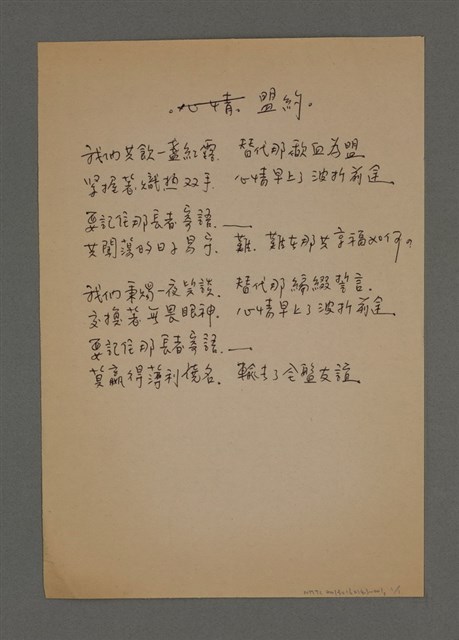 。心情、盟約。
我們共飲一盞紅露. 替代那歃血為盟
緊握著熾热双手. 心情早上了波折前途
要記住那長者寄語.——
共闖蕩的日子易守. 難. 難在那共享福如何。
我們秉燭一夜笑談. 替代那編綴誓言.
交換著無畏眼神. 心情早上了波折前途
要記住那長者寄語.——
莫贏得薄利僥名. 輸去了全盤友誼